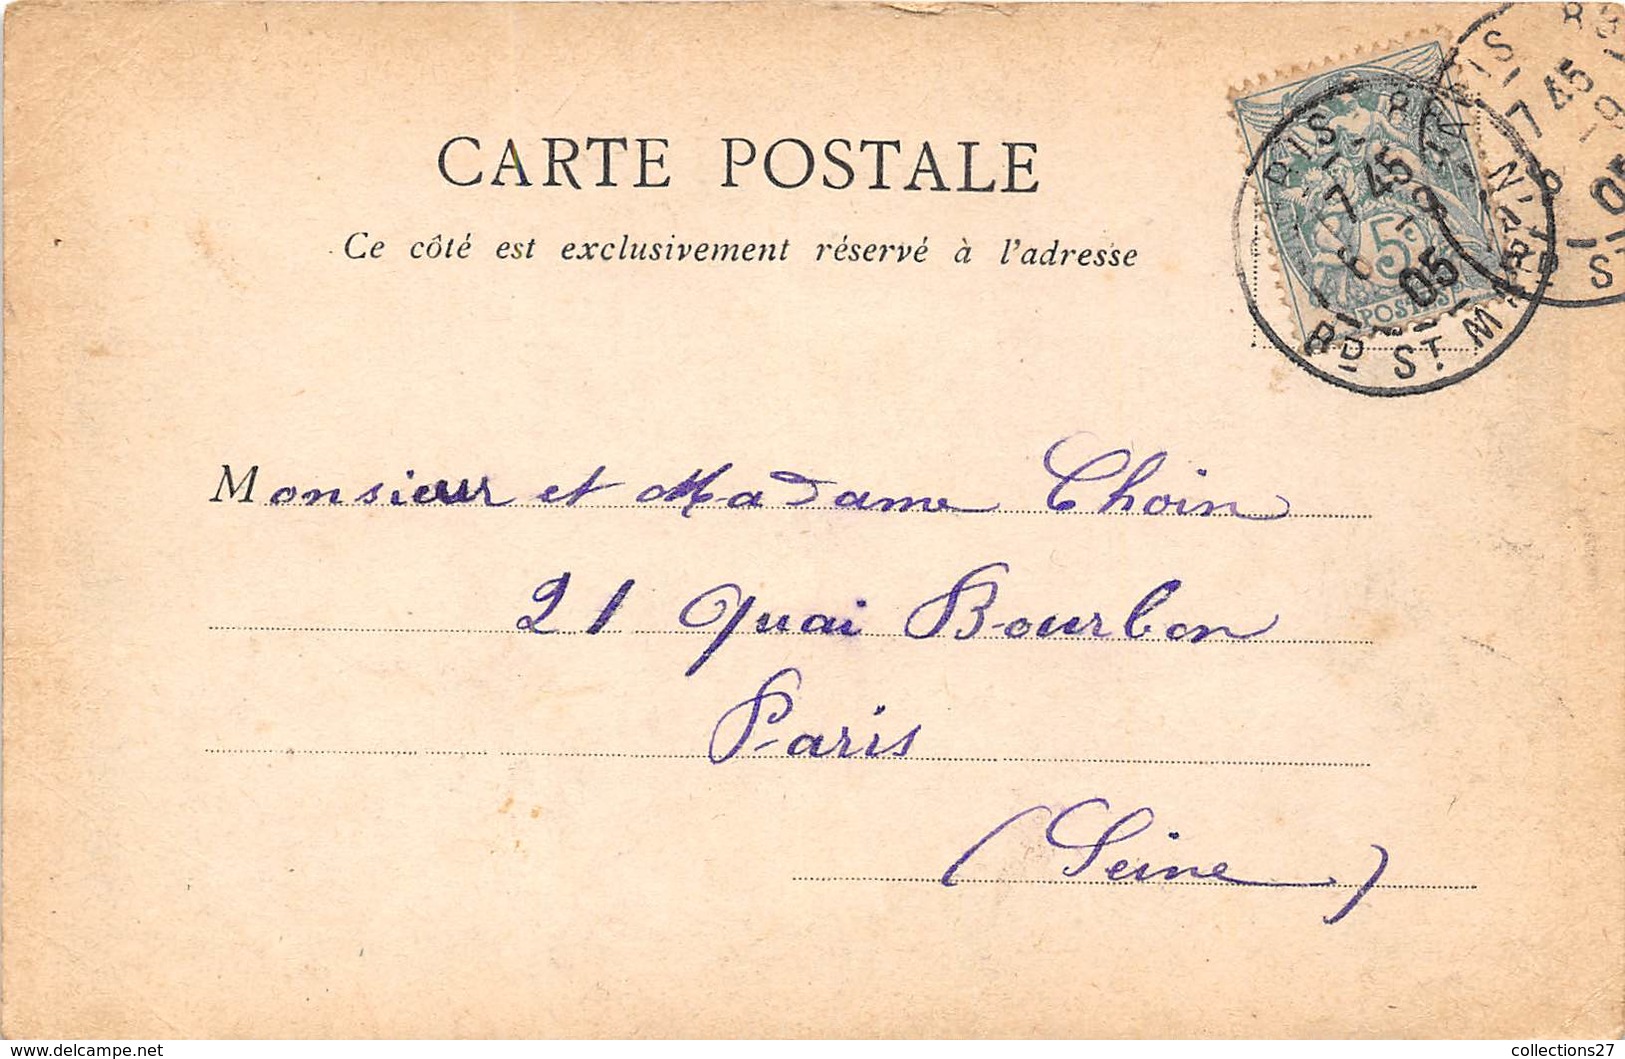 CARTE POSTALE
Ce côté est exclusivement réservé à l'adresse
PARIS
7 45
8 - 9
05
BD ST MARD
5c
POSTES
7 45
05
Monsieur et Madame Choin
21 Quai Bourbon
Paris
(Seine)
www.delcampe.net
collections27